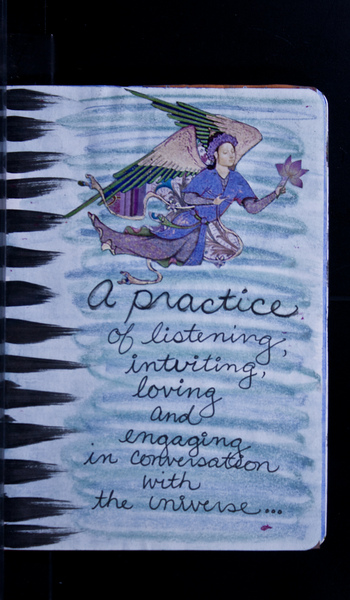 A practice
of listening,
intuiting,
loving
and
engaging
in conversation
with
the universe...